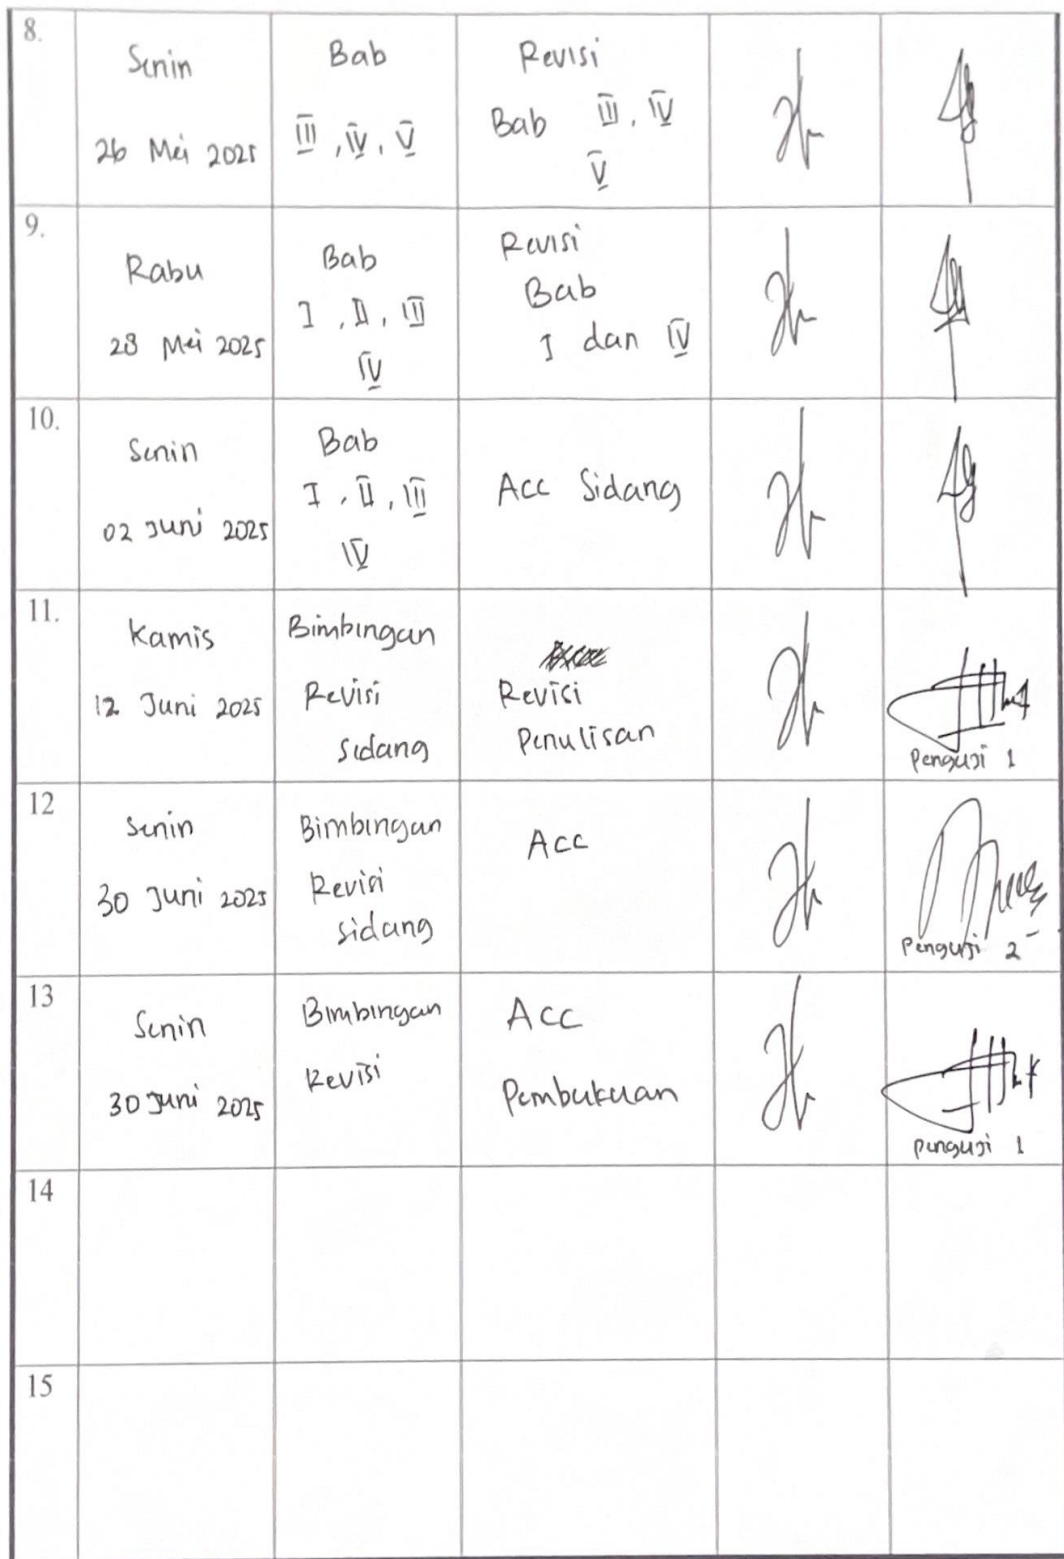 8.
Senin
26 Mei 2025
Bab
III, IV, V
Revisi
Bab III, IV
V
9.
Rabu
28 Mei 2025
Bab
I, II, III
IV
Revisi
Bab
I dan IV
10.
Senin
02 Juni 2025
Bab
I, II, III
IV
Acc Sidang
11.
Kamis
12 Juni 2025
Bimbingan
Revisi
Sidang
Revisi
Penulisan
Penguji 1
12
Senin
30 Juni 2025
Bimbingan
Revisi
sidang
Acc
Penguji 2
13
Senin
30 Juni 2025
Bimbingan
Revisi
Acc
Pembukuan
penguji 1
14
15